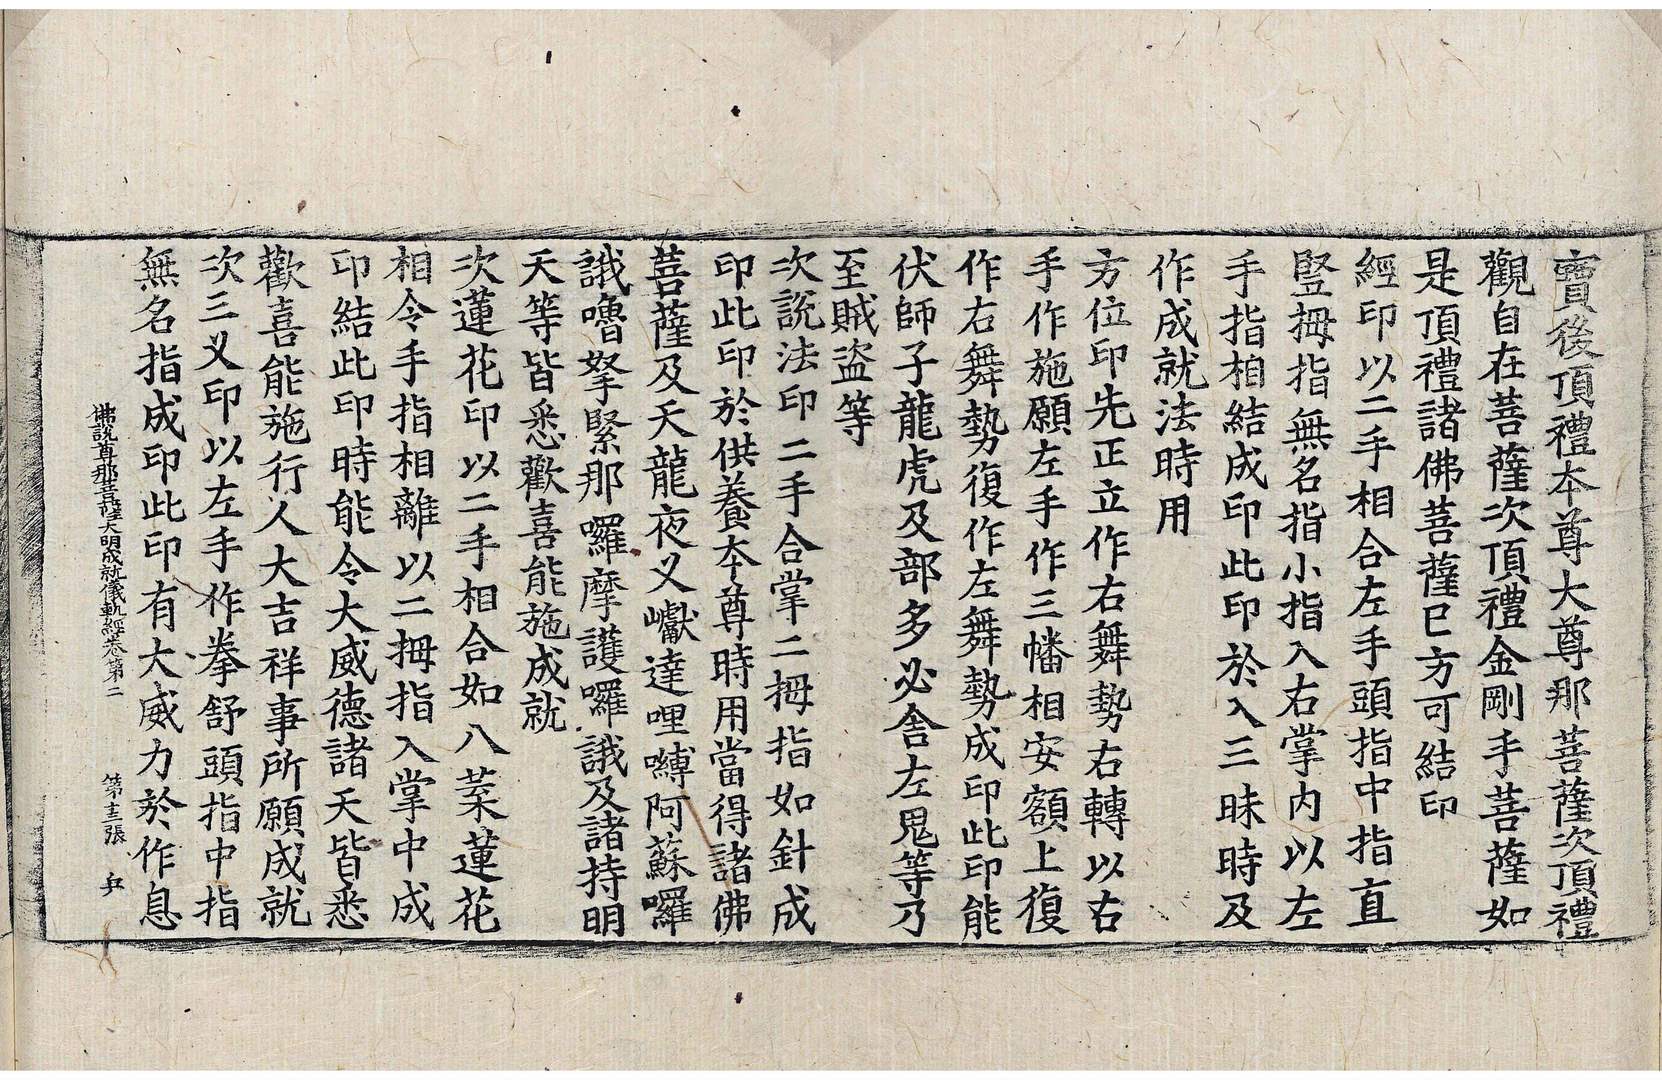 寶後頂禮本尊大尊那菩薩次頂禮
觀自在菩薩次頂禮金剛手菩薩如
是頂禮諸佛菩薩巳方可結印
經印以二手相合左手頭指中指直
竪拇指無名指小指入右掌内以左
手指相結成印此印於入三昧時及
作成就法時用
方位印先正立作右舞勢右轉以右
手作施願左手作三幡相安額上復
作右舞勢復作左舞勢成印此印能
伏師子龍虎及部多必舎左鬼等乃
至賊盜等
次說法印二手合掌二拇指如針成
印此印於供養本尊時用當得諸佛
菩薩及天龍夜叉巘達哩嚩阿蘇囉
誐嚕拏緊那囉摩護囉誐及諸持明
天等皆悉歡喜能施成就
次蓮花印以二手相合如八葉蓮花
相令手指相離以二拇指入掌中成
印結此印時能令大威德諸天皆悉
歡喜能施行人大吉祥事所願成就
次三叉印以左手作拳舒頭指中指
無名指成印此印有大威力於作息
佛說尊那菩薩大明成就儀軌經卷第二 第 張 兵